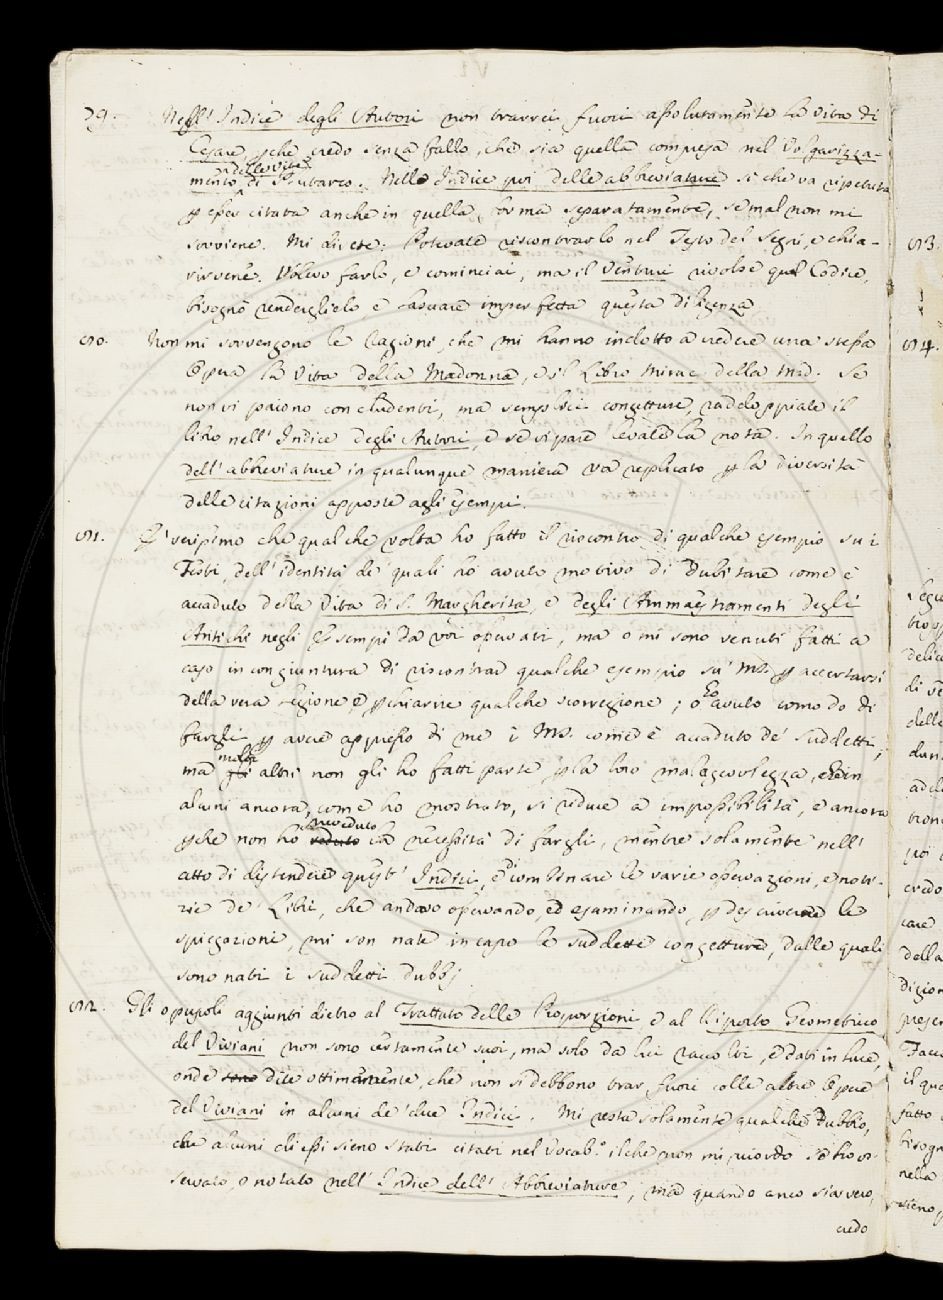 79. Nell' Indice degli Autori non trarrei fuori assolutamente la Vita di
Cesare, pche credo senza fallo, che sia quella compresa nel Volgarizza-
mento delle vite di Plutarco. Nello Indice poi delle abbreviature si che va ripetuta
p esser citata anche in quella forma separatamente, se mal non mi
sovviene. Mi direte: Potevate riscontrarlo nel Testo del Segni, e chia-
rirvene. Volevo farlo, e cominciai, ma il Venturi rivolse quel Codice,
bisognò renderglielo, e lasciare imperfetta questa diligenza.
80. Non mi sovvengono le cagioni, che mi hanno indotto a credere una stessa
Opera la Vita della Madonna, e il Libro Mirac. della Mad. Se
non vi paiono concludenti, ma semplici congetture, raddoppiate il
libro nell' Indice degli Autori, e se vi pare levate la nota. In quello
dell' abbreviature in qualunque maniera va replicato p la diversità
delle citazioni apposte agli esempi.
81. E' verissimo che qualche volta ho fatto il riscontro di qualche esempio su i
Testi, dell' identità de' quali ho avuto motivo di dubitare come è
accaduto della Vita di S. Margherita, e degli Ammaestramenti degli
Antichi negli Esempi da voi osservati, ma o mi sono venuti fatti a
caso in congiuntura di riscontrar qualche esempio su' MS. p accertarsi
della vera lezione, e pchiarire qualche scorrezione; o ho avuto comodo di
fargli p avere appresso di me i MS. come è accaduto de' suddetti;
ma molti gli altri non gli ho fatti parte p la loro malagevolezza, che in
alcuni ancora, come ho mostrato, si riduce a impossibilità, e ancora
pche non ho preveduto veduto la necessità di fargli, mentre solamente nell'
atto di distendere quest' Indici, e combinare le varie osservazioni, e noti-
zie de' Libri, che andavo osservando, ed esaminando, p descriverne le
spiegazioni, mi son nate in capo le suddette congetture, dalle quali
sono nati i suddetti dubbj.
82. Gli opuscoli aggiunti dietro al Trattato delle Proporzioni e al Diporto Geometrico
del Viviani non sono certamente suoi, ma solo da lui raccolti, e dati in luce,
onde sono dite ottimamente, che non si debbono trar fuori colle altre Opere
del Viviani in alcuni de' due Indici. Mi resta solamente qualche dubbio,
che alcuni di essi sieno stati citati nel Vocab.o il che non mi ricordo se ho os-
servato, o notato nell' Indice dell' Abbreviature; ma quando anco sia vero,
credo
83.
84.